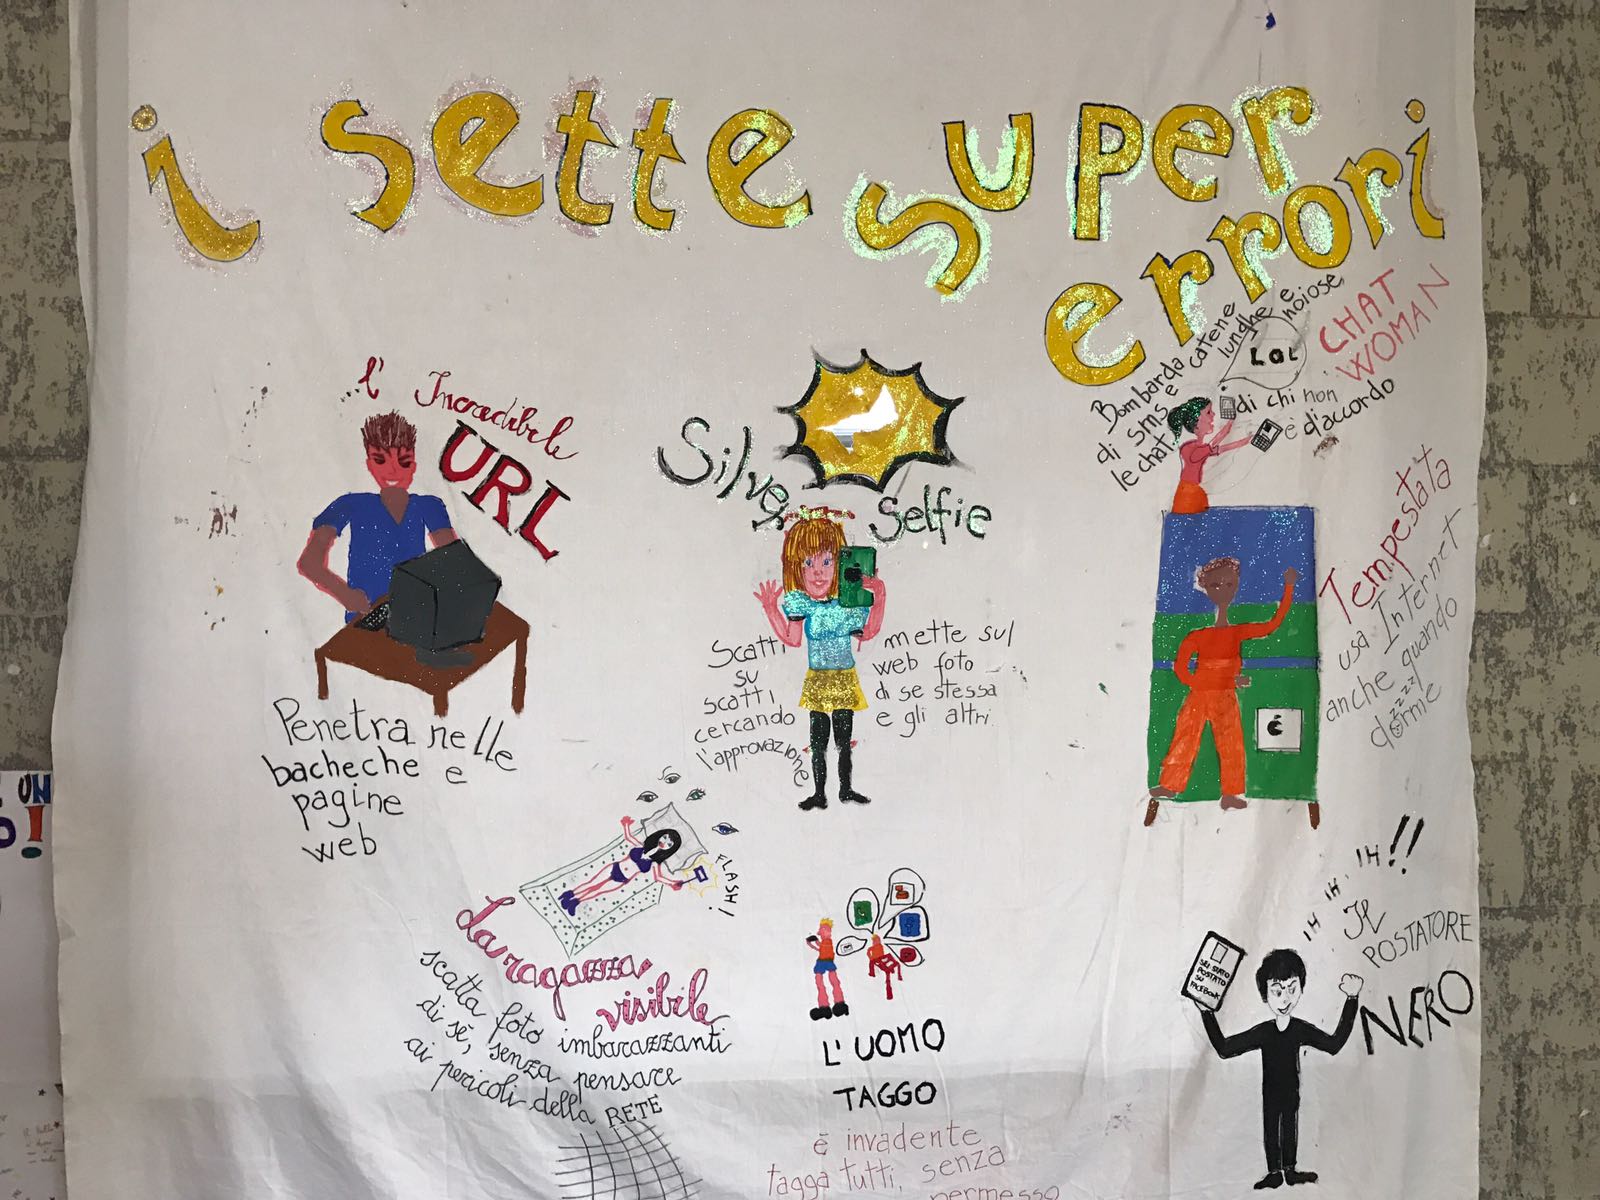 i sette super
errori
l' Incredibile
URL
Penetra nelle
bacheche e
pagine
web
Silver
Selfie
Scatti
su
scatti
cercando
l'approvazione
mette sul
web foto
di se stessa
e gli altri
CHAT
WOMAN
LOL
Bombarda
di sms e catene
lunghe e
noiose
le chat
di chi non
è d'accordo
Tempestata
usa Internet
anche quando
zzzz
dorme
FLASH!
La ragazza
visibile
scatta foto imbarazzanti
di sé, senza pensare
ai pericoli della RETE
L'UOMO
TAGGO
è invadente
tagga tutti, senza
permesso
IH IH IH!!
Il
POSTATORE
NERO
SEI STATO
POSTATO
SU
FACEBOOK
UN
O!